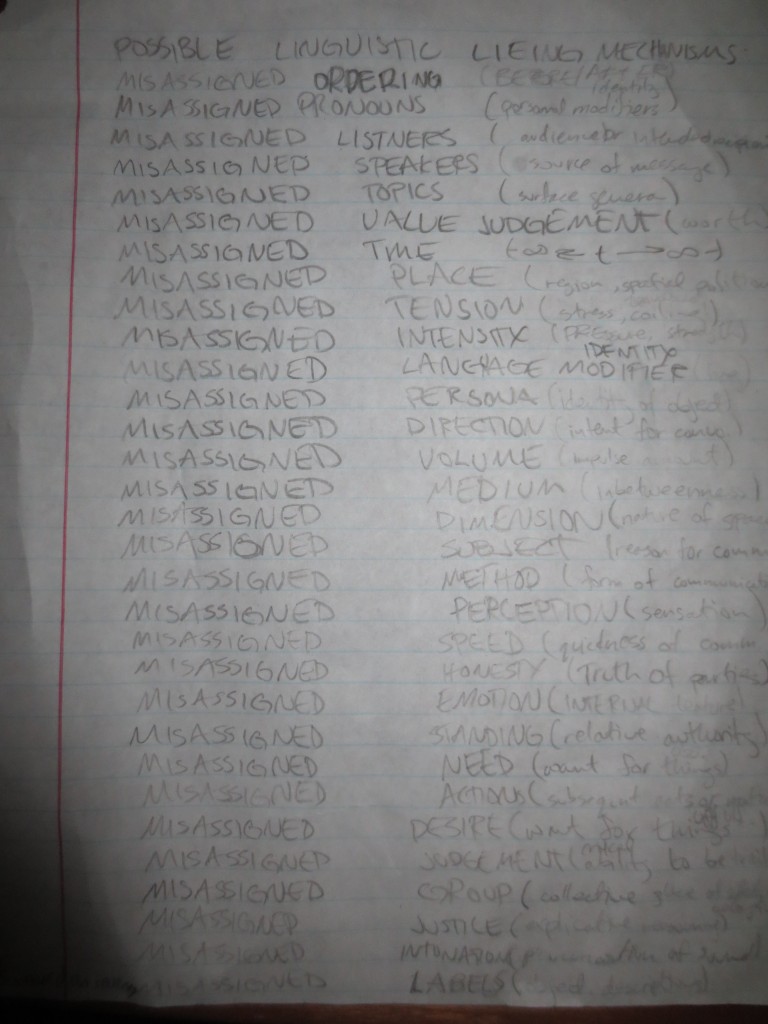 POSSIBLE LINGUISTIC LIEING MECHANISMS
MISASSIGNED ORDERING (BEFORE/AFTER)
MISASSIGNED PRONOUNS (personal identity modifiers)
MISASSIGNED LISTNERS (audience or intended
MISASSIGNED SPEAKERS (source of message)
MISASSIGNED TOPICS (surface general)
MISASSIGNED VALUE JUDGEMENT (worth)
MISASSIGNED TIME
MISASSIGNED PLACE (region, spatial position
MISASSIGNED TENSION (stress,
MISASSIGNED INTENSITY (PRESSURE,
MISASSIGNED LANGUAGE IDENTITY MODIFIER
MISASSIGNED PERSONA (identity of object)
MISASSIGNED DIRECTION (intent for
MISASSIGNED VOLUME (impulse amount)
MISASSIGNED MEDIUM (inbetweenness)
MISASSIGNED DIMENSION (nature of space
MISASSIGNED SUBJECT (reason for comm
MISASSIGNED METHOD (form of communicat
MISASSIGNED PERCEPTION (sensation)
MISASSIGNED SPEED (quickness of comm
MISASSIGNED HONESTY (Truth of parties)
MISASSIGNED EMOTION
MISASSIGNED STANDING (relative authority)
MISASSIGNED NEED (want for things)
MISASSIGNED ACTIONS (subsequent
MISASSIGNED DESIRE (want for things
MISASSIGNED JUDGEMENT (ability to be
MISASSIGNED GROUP (collective
MISASSIGNED JUSTICE
MISASSIGNED INTONATION of sound)
MISASSIGNED LABELS (object descriptions)